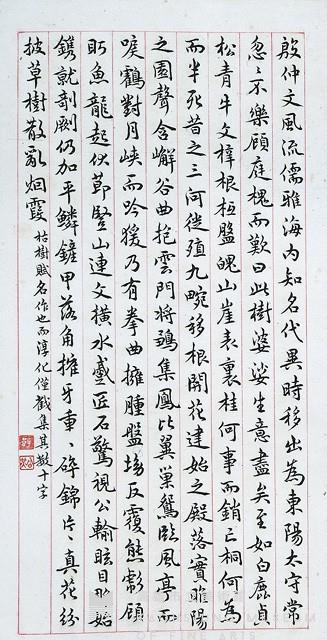 殷仲文風流儒雅海內知名代異時移出為東陽太守常
忽〻不樂顧庭槐而歎曰此樹婆娑生意盡矣至如白鹿貞
松青牛文梓根柢盤魄山崖表裏桂何事而銷亡桐何為
而半死昔之三河徙殖九畹移根開花建始之殿落實睢陽
之園聲含嶰谷曲抱雲門將鶵集鳳比翼巢鴛臨風亭而
唳鶴對月峽而吟猨乃有拳曲擁腫盤坳反覆熊彪顧
盼魚龍起伏節豎山連文橫水蹙匠石驚視公輸眩目始
鐫就剞劂仍加平鱗鏟甲落角摧牙重〻碎錦片〻真花紛
披草樹散亂烟霞
枯樹賦名作也而淳化僅截集其數十字